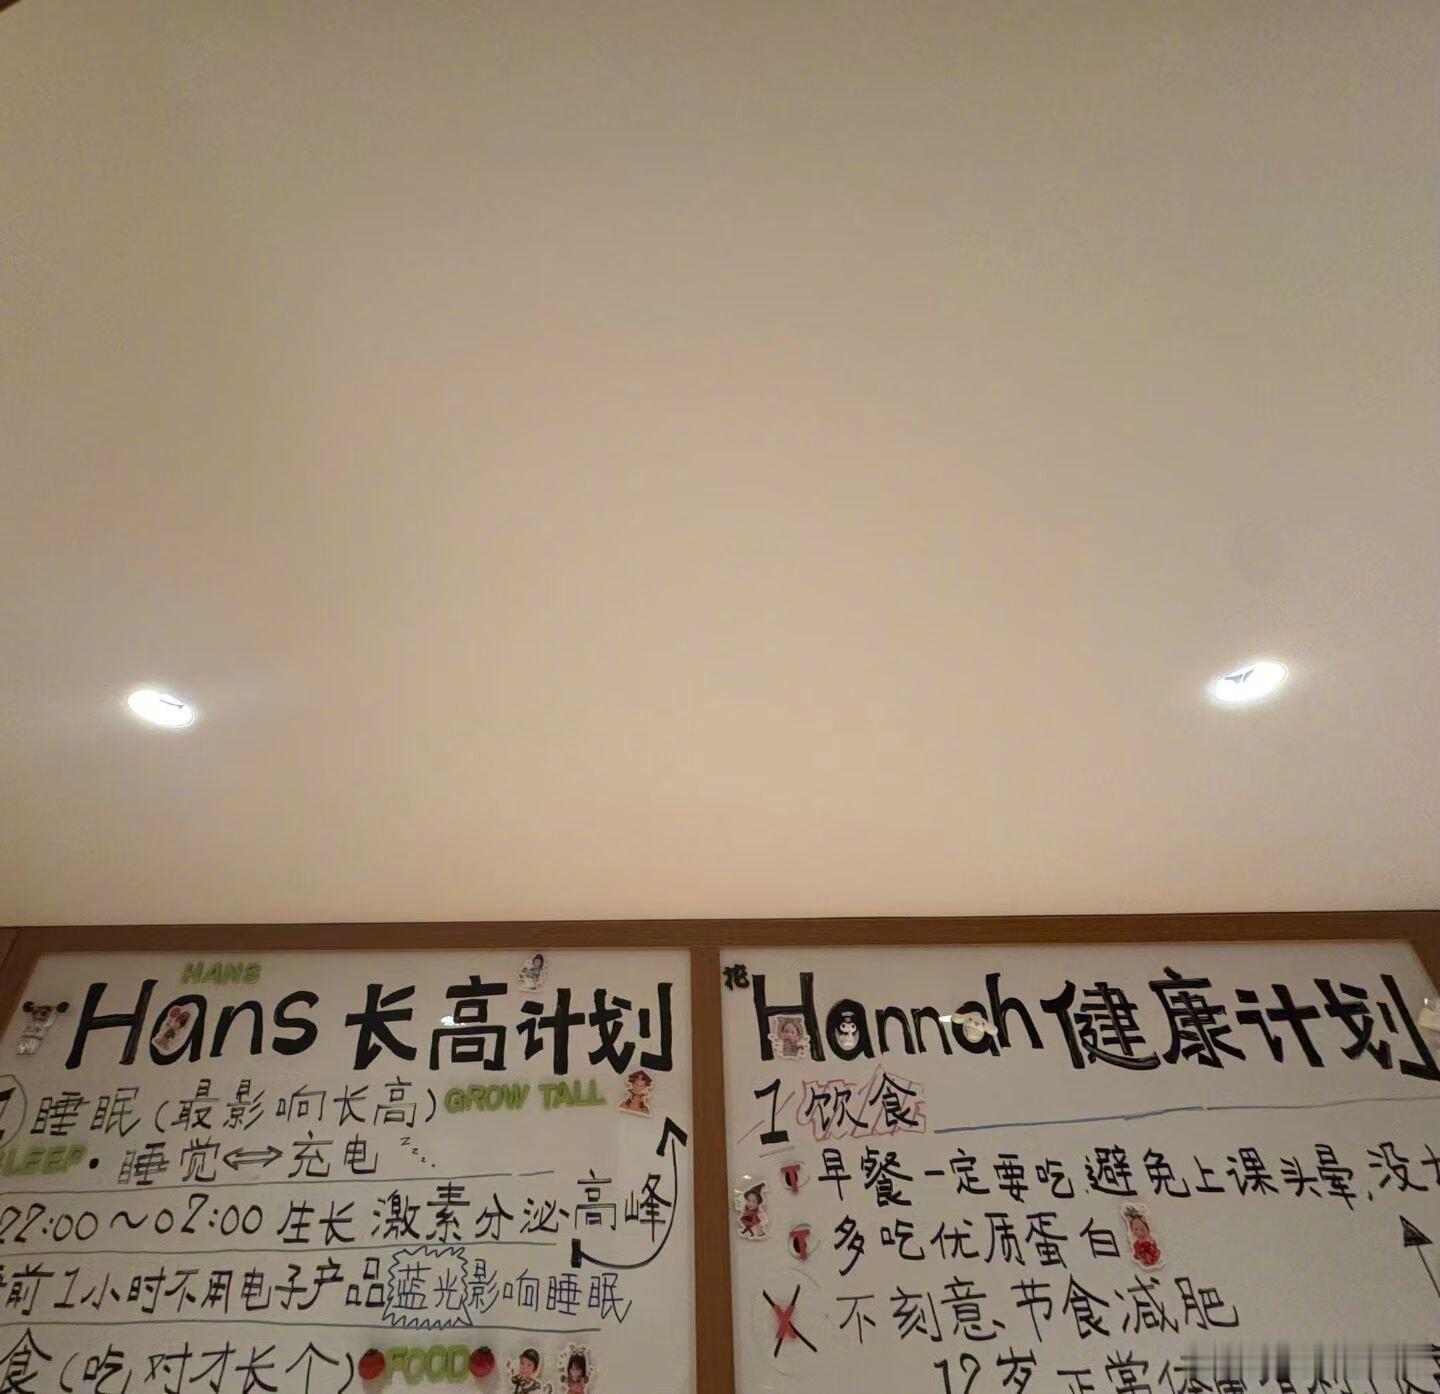 HANS
Hans 长高计划
睡眠(最影响长高) GROW TALL
SLEEP • 睡觉⇔充电 zzz
22:00～02:00 生长激素分泌高峰
前1小时不用电子产品蓝光影响睡眠
食(吃对才长个) FOOD
Hannah 健康计划
1 饮食
早餐一定要吃,避免上课头晕,没
多吃优质蛋白
X 不刻意、节食减肥
12岁正常体重